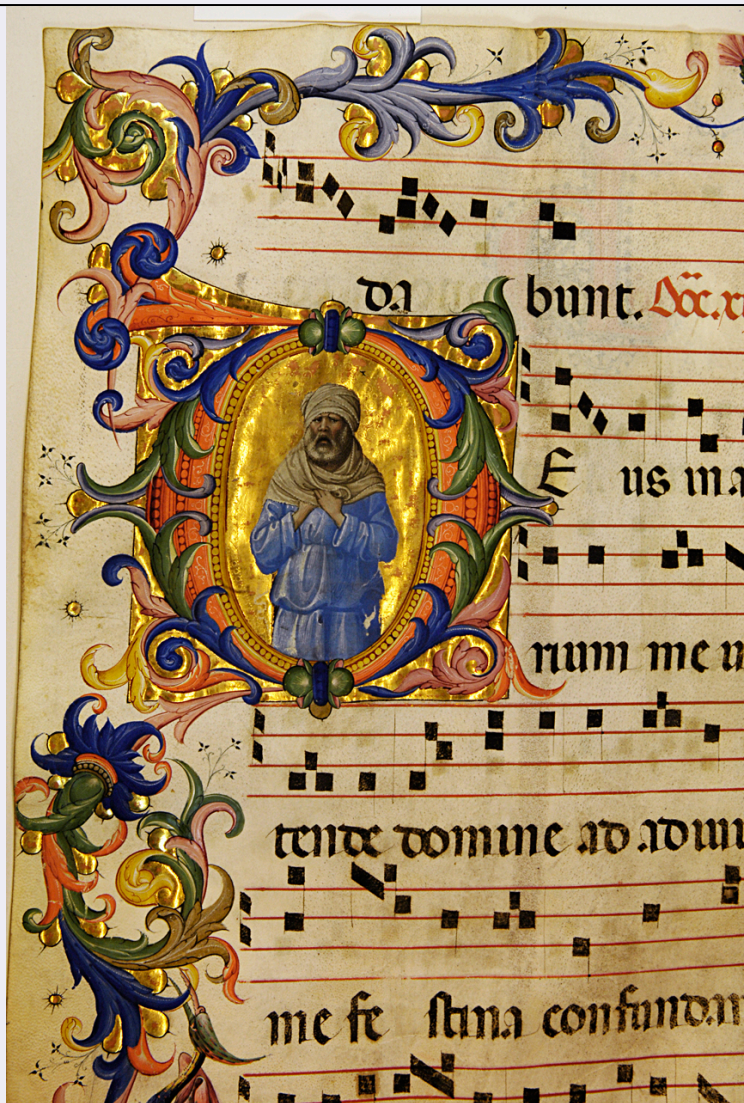 da bunt.
DE us in a
rium me u
tende domine ad adiuu
me fe stina confundan